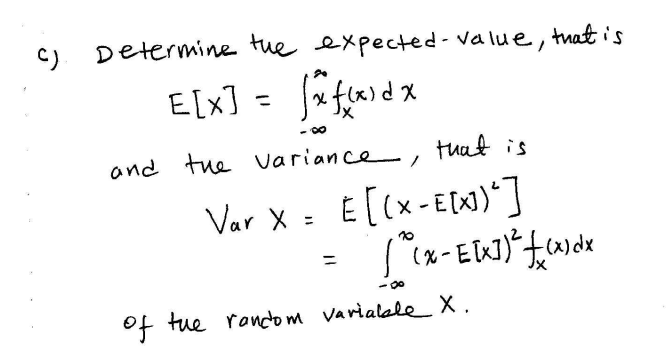 c) Determine the expected-value, that is
E[X] = ∫_{-∞}^{∞} x f_X(x) dx
and the variance, that is
Var X = E[(X - E[X])²]
= ∫_{-∞}^{∞} (x - E[X])² f_X(x) dx
of the random variable X.